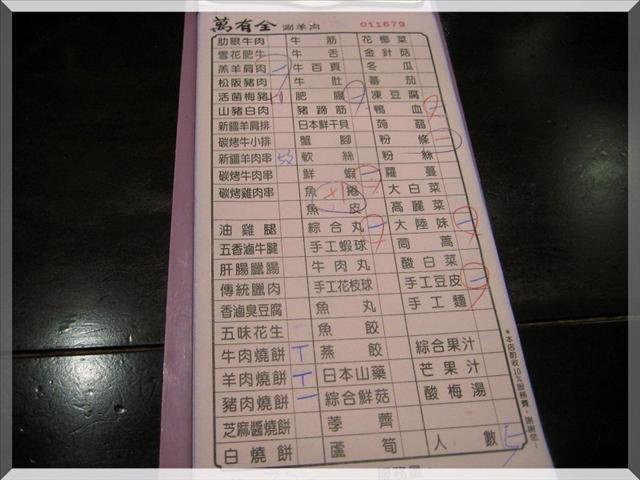 萬有全 涮羊肉 011679
肋眼牛肉 牛筋 花椰菜
雪花肥牛 牛舌 金針菇
羔羊肩肉 一 牛百頁 冬瓜
松阪豬肉 牛肚 蕃茄
活菌梅豬 肥腸 一 凍豆腐
山豬白肉 豬蹄筋 鴨血
新疆羊肩排 日本鮮干貝 蒟蒻
碳烤牛小排 蟹腳 粉條
新疆羊肉串 軟絲 粉絲
碳烤牛肉串 鮮蝦 一 蘿蔓
碳烤雞肉串 魚捲 大白菜
魚皮 高麗菜
油雞腿 綜合丸 一 大陸妹 一
五香滷牛腱 手工蝦球 茼蒿
肝腸臘腸 牛肉丸 酸白菜
傳統臘肉 手工花枝球 手工豆皮 一
香滷臭豆腐 魚丸 手工麵
五味花生 魚餃
牛肉燒餅 T 燕餃 綜合果汁
羊肉燒餅 T 日本山藥 芒果汁
豬肉燒餅 一 綜合鮮菇 酸梅湯
芝麻醬燒餅 荸薺
白燒餅 蘆筍 人數 5
*本店酌收10%服務費，謝謝您！
服務員